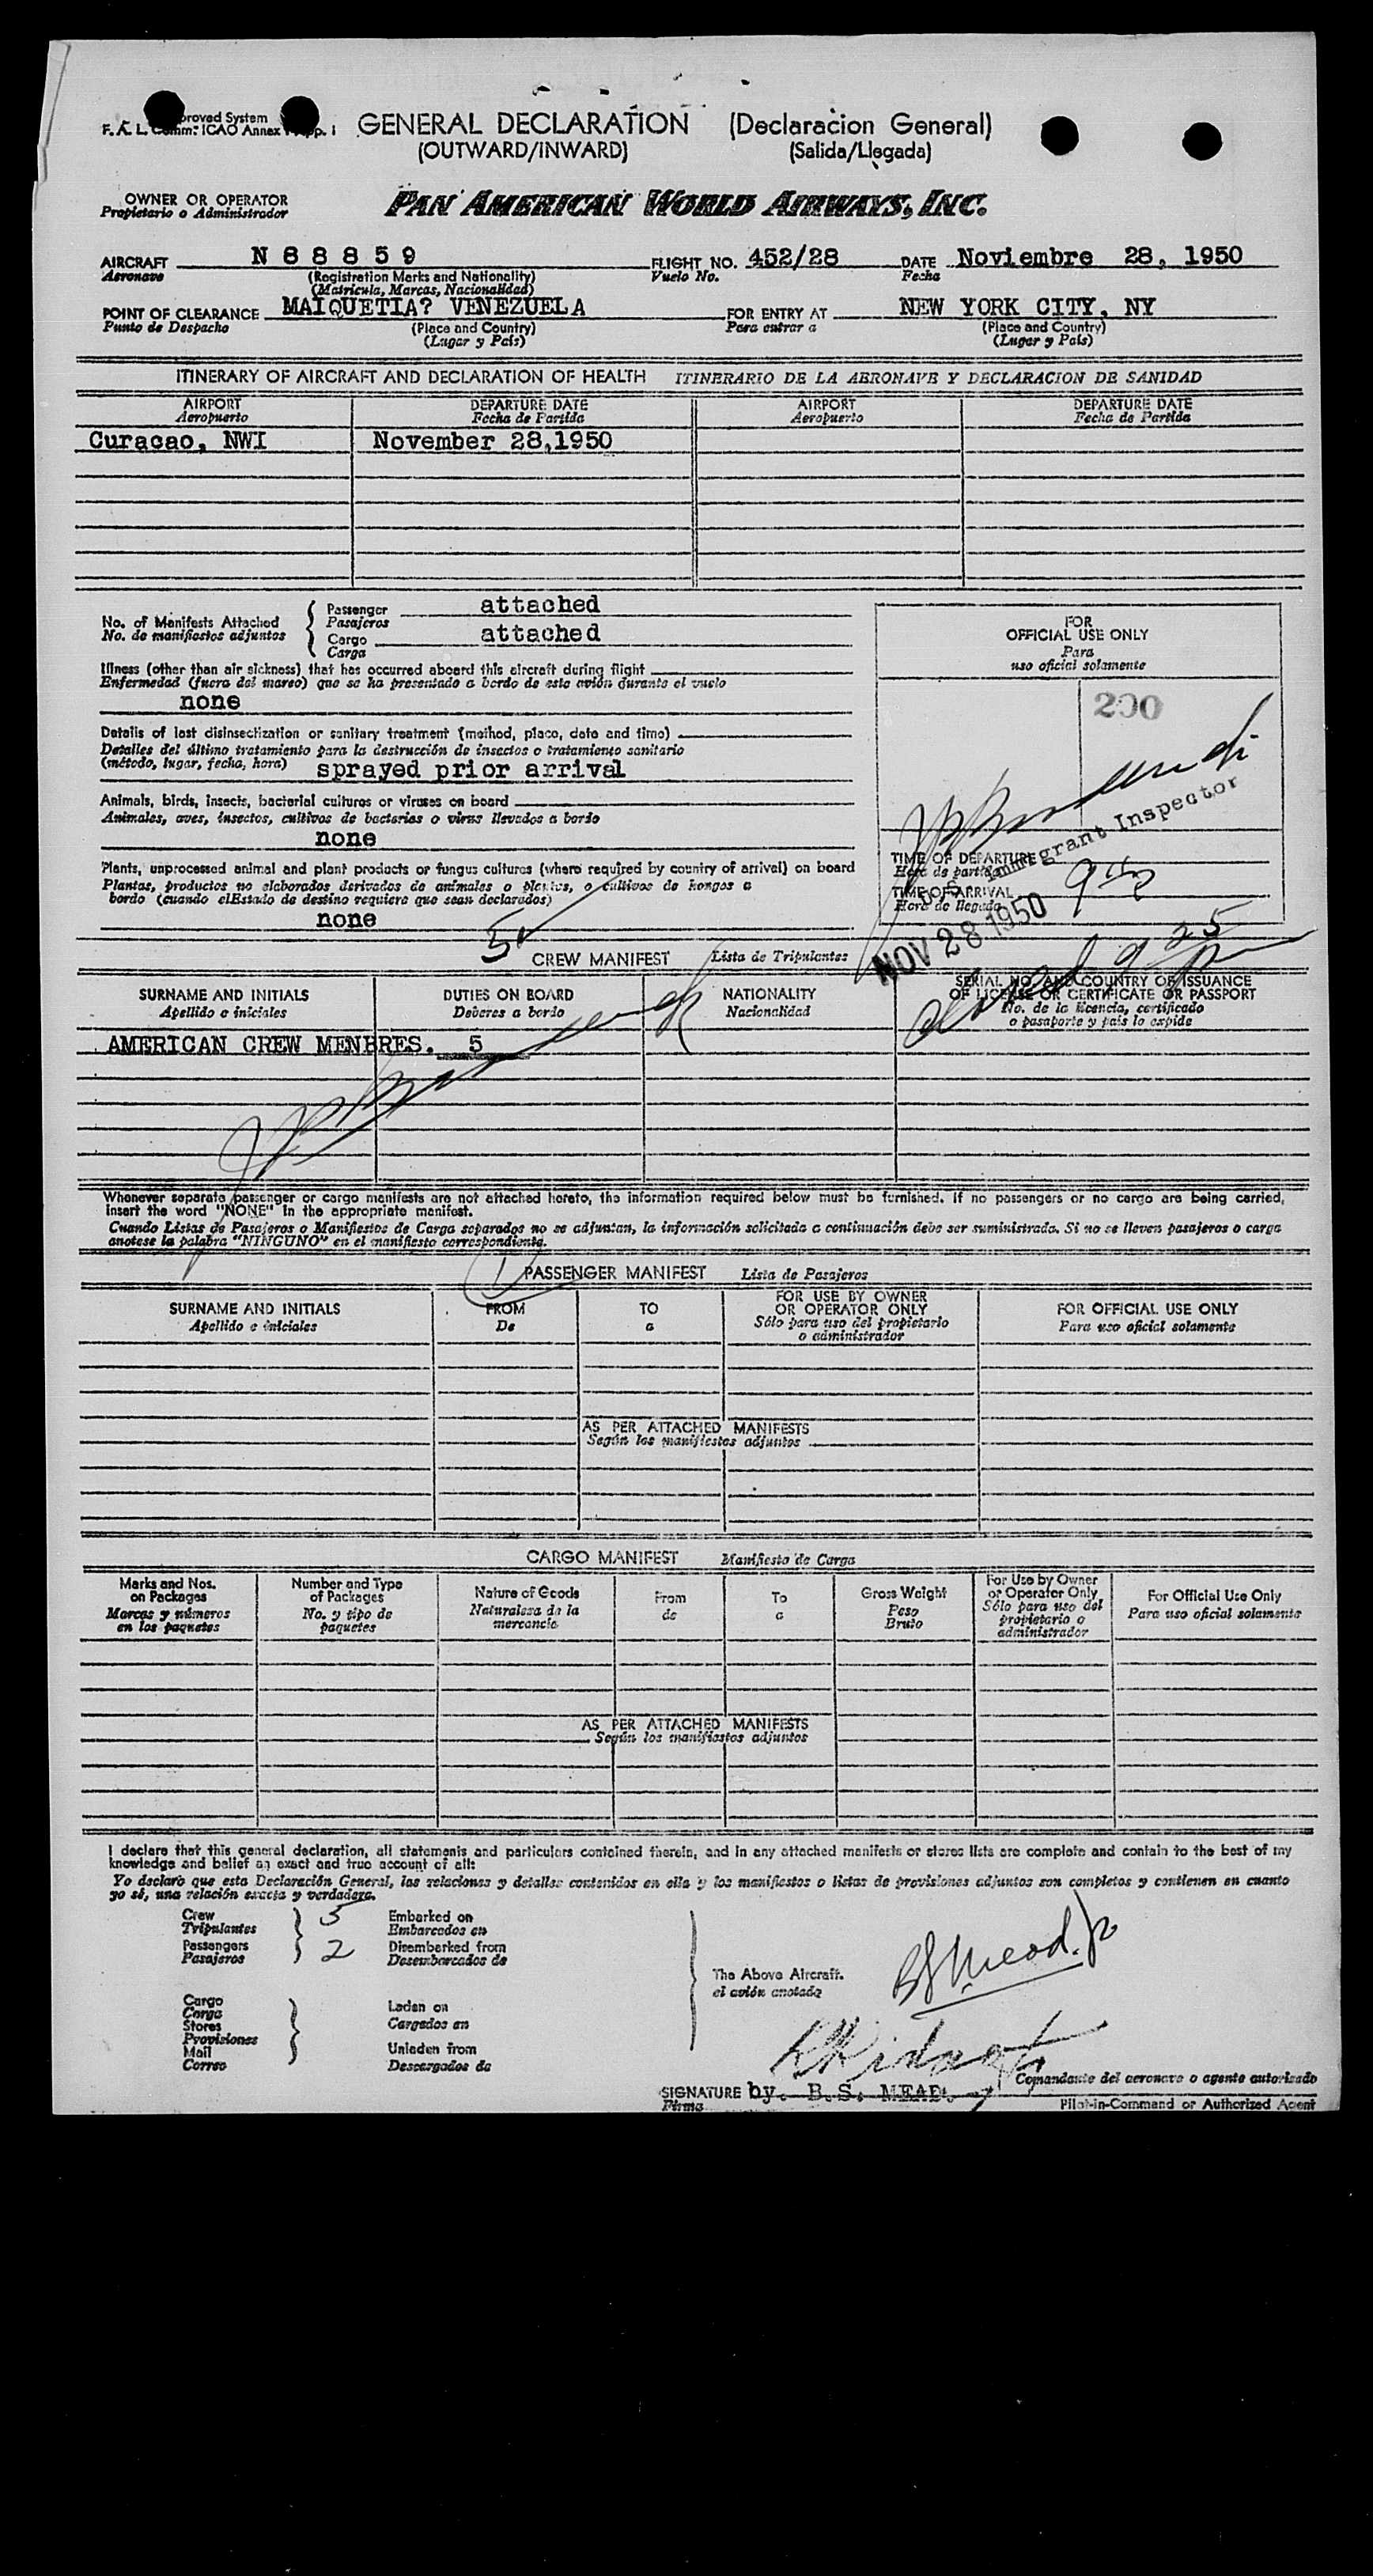 GENERAL DECLARATION (Declaracion General)
(OUTWARD/INWARD) (Salida/Llegada)
OWNER OR OPERATOR
Propietario o Administrador
PAN AMERICAN WORLD AIRWAYS, INC.
AIRCRAFT N 8 8 8 5 9 FLIGHT NO. 452/28 DATE Noviembre 28, 1950
Aeronave (Registration Marks and Nationality) Vuelo No. Fecha
(Matricula, Marcas, Nacionalidad)
POINT OF CLEARANCE MAIQUETIA? VENEZUELA FOR ENTRY AT NEW YORK CITY, NY
Punto de Despacho (Place and Country) Para entrar a (Place and Country)
(Lugar y País) (Lugar y País)
ITINERARY OF AIRCRAFT AND DECLARATION OF HEALTH ITINERARIO DE LA AERONAVE Y DECLARACION DE SANIDAD
AIRPORT DEPARTURE DATE AIRPORT DEPARTURE DATE
Aeropuerto Fecha de Partida Aeropuerto Fecha de Partida
Curacao, NWI November 28,1950
No. of Manifests Attached
No. de manifiestos adjuntos
Passenger attached
Pasajeros
Cargo attached
Carga
Illness (other than air sickness) that has occurred aboard this aircraft during flight
Enfermedad (fuera del mareo) que se ha presentado a bordo de este avión durante el vuelo
none
Details of last disinsectization or sanitary treatment (method, place, date and time)
Detalles del último tratamiento para la destrucción de insectos o tratamiento sanitario
(método, lugar, fecha, hora) sprayed prior arrival
Animals, birds, insects, bacterial cultures or viruses on board
Animales, aves, insectos, cultivos de bacterias o virus llevados a bordo
none
Plants, unprocessed animal and plant products or fungus cultures (where required by country of arrival) on board
Plantas, productos no elaborados derivados de animales o plantas, o cultivos de hongos a
bordo (cuando elEstado de destino requiere que sean declarados)
none
FOR
OFFICIAL USE ONLY
Para
uso oficial solamente
200
Immigrant Inspector
TIME OF DEPARTURE
Hora de partida
TIME OF ARRIVAL
Hora de llegada
NOV 28 1950
5
CREW MANIFEST Lista de Tripulantes
SURNAME AND INITIALS DUTIES ON BOARD NATIONALITY SERIAL NO. AND COUNTRY OF ISSUANCE
OF LICENSE OR CERTIFICATE OR PASSPORT
Apellido e iniciales Deberes a bordo Nacionalidad No. de la licencia, certificado
o pasaporte y país lo expide
AMERICAN CREW MENBRES. 5
Whenever separate passenger or cargo manifests are not attached hereto, the information required below must be furnished. If no passengers or no cargo are being carried,
insert the word "NONE" in the appropriate manifest.
Cuando Listas de Pasajeros o Manifiestos de Carga separados no se adjuntan, la información solicitada a continuación debe ser suministrada. Si no se lleven pasajeros o carga
anotese la palabra "NINGUNO" en el manifiesto correspondiente.
PASSENGER MANIFEST Lista de Pasajeros
SURNAME AND INITIALS FROM TO FOR USE BY OWNER
OR OPERATOR ONLY FOR OFFICIAL USE ONLY
Apellido e iniciales De a Sólo para uso del propietario
o administrador Para uso oficial solamente
AS PER ATTACHED MANIFESTS
Según los manifiestos adjuntos
CARGO MANIFEST Manifiesto de Carga
Marks and Nos.
on Packages
Marcas y números
en los paquetes
Number and Type
of Packages
No. y tipo de
paquetes
Nature of Goods
Naturaleza de la
mercancía
From
de
To
a
Gross Weight
Peso
Bruto
For Use by Owner
or Operator Only
Sólo para uso del
propietario o
administrador
For Official Use Only
Para uso oficial solamente
AS PER ATTACHED MANIFESTS
Según los manifiestos adjuntos
I declare that this general declaration, all statements and particulars contained therein, and in any attached manifests or stores lists are complete and contain to the best of my
knowledge and belief an exact and true account of all:
Yo declaro que esta Declaración General, las relaciones y detalles contenidos en ella y los manifiestos o listas de provisiones adjuntos son completos y contienen en cuanto
yo sé, una relación exacta y verdadera.
Crew 5 Embarked on
Tripulantes Embarcados en
Passengers 2 Disembarked from
Pasajeros Desembarcados de
The Above Aircraft.
el avión anotado
Cargo
Carga
Stores
Provisiones
Mail
Correo
Laden on
Cargados en
Unladen from
Descargados de
BS Mead. Jr
Comandante del aeronave o agente autorizado
SIGNATURE by. B.S. MEAD.
Firma Pilot-in-Command or Authorized Agent